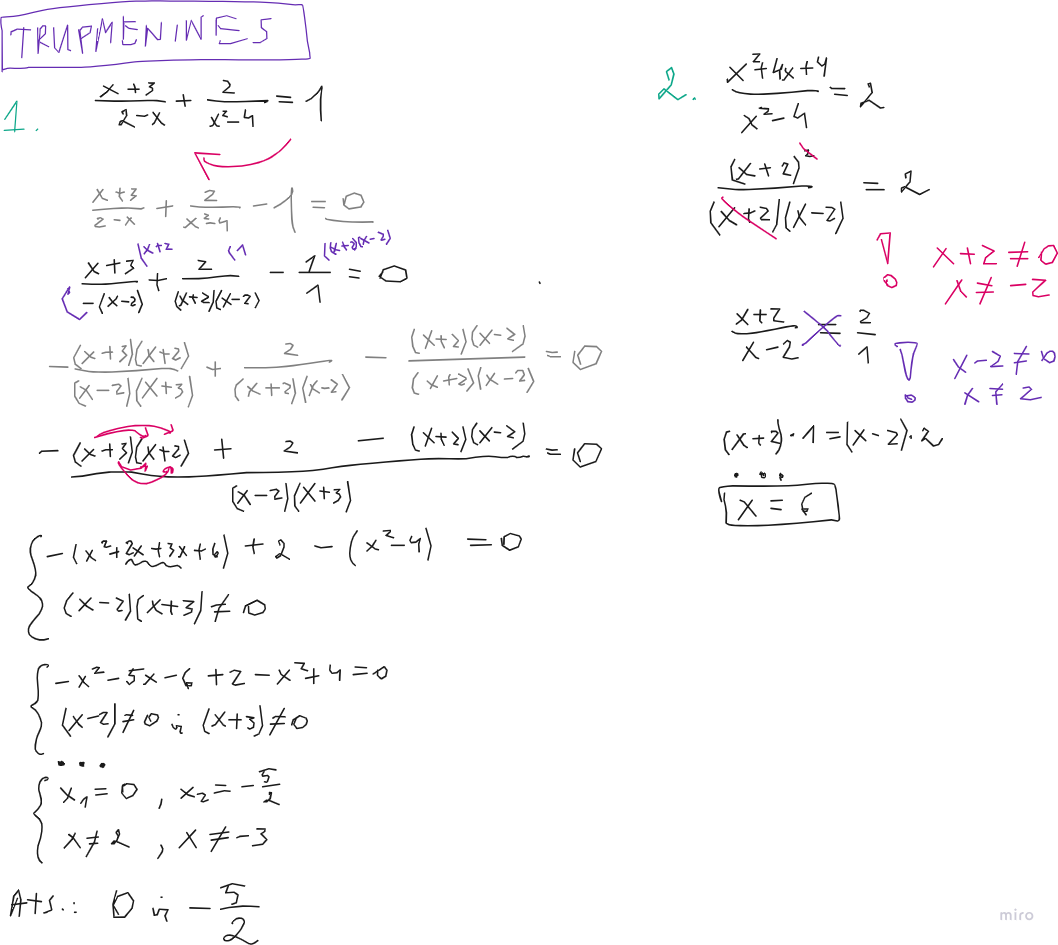 TRUPMENINĖS
1.
x+3/2-x + 2/x²-4 = 1
x+3/2-x + 2/x²-4 - 1 = 0
(x+2 (1 (x+2)(x-2)
x+3/-(x-2) + 2/(x+2)(x-2) - 1/1 = 0
-(x+3)(x+2)/(x-2)(x+3) + 2/(x+2)(x-2) - (x+2)(x-2)/(x+2)(x-2) = 0
-(x+3)(x+2) + 2 - (x+2)(x-2) = 0
(x-2)(x+3)
{ -(x²+2x+3x+6) + 2 - (x²-4) = 0
(x-2)(x+3) ≠ 0
{ -x²-5x-6+2-x²+4=0
(x-2)≠0 ir (x+3)≠0
...
{ x₁=0, x₂=-5/2
x≠2, x≠-3
Ats.: 0 ir -5/2
2.
x²+4x+4/x²-4 = 2
(x+2)²/(x+2)(x-2) = 2
! x+2≠0
x≠-2
x+2/x-2 = 2/1
! x-2≠0
x≠2
(x+2)·1=(x-2)·2
...
x = 6
miro